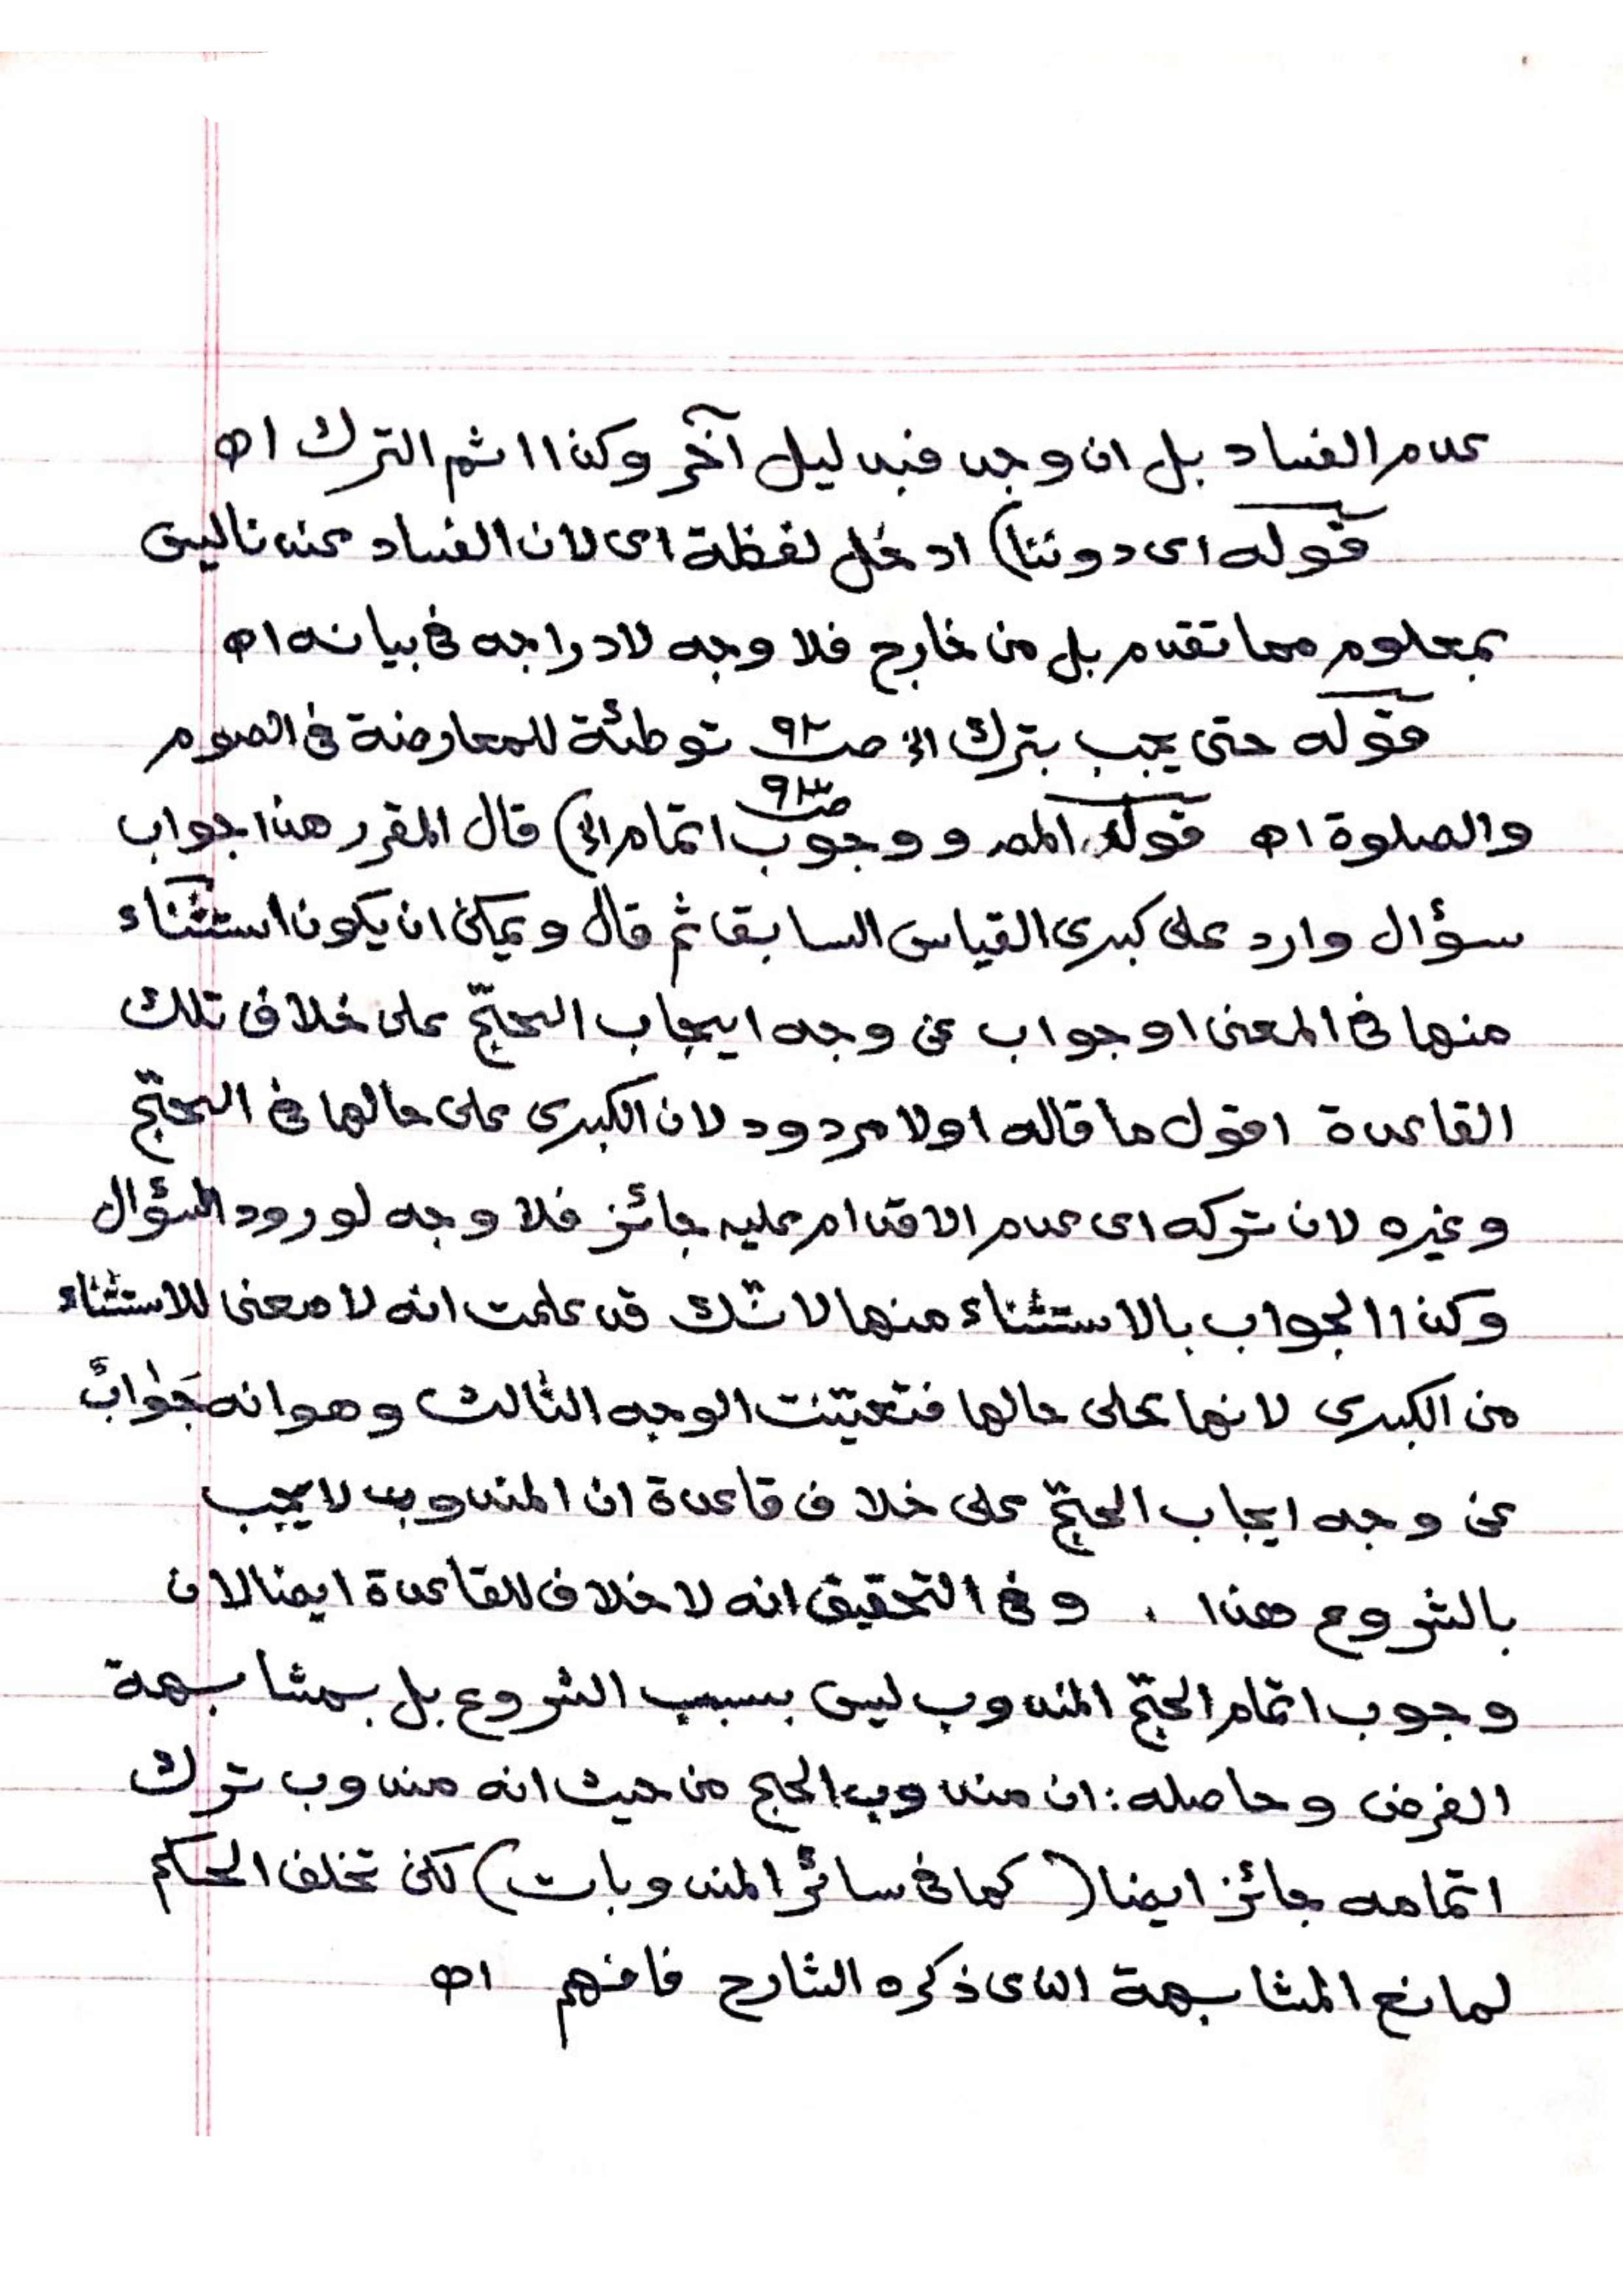 عدم الفساد بل ان وجد فبدليل آخر وكذا اثم الترك اه
قوله اى دوننا) ادخل لفظة اى لان الفساد عندنا ليس
بمعلوم مما تقدم بل من خارج فلا وجه لادراجه فى بيانه اه
قوله حتى يجب بترك الخ صـ٩٢ توطئة للمعارضة فى الصوم
والصلوة اه قوله المصـ ووجوب اتمام الخ) صـ٩٣ قال المقرر هذا جواب
سؤال وارد على كبرى القياس السابق ثم قال ويمكن ان يكون استثناء
منها فى المعنى او جواب عن وجه ايجاب الحجّ على خلاف تلك
القاعدة اقول ما قاله اولا مردود لان الكبرى على حالها فى الحجّ
وغيره لان تركه اى عدم الاقدام عليه جائز فلا وجه لورود السؤال
وكذا الجواب بالاستثناء منها لانّك قد علمت انه لا معنى للاستثناء
من الكبرى لانها على حالها فتعيّنت الوجه الثالث وهو انه جَوابٌ
عن وجه ايجاب الحجّ على خلاف قاعدة ان المندوب لا يجب
بالشروع هذا . وفى التحقيق انه لا خلاف للقاعدة ايضا لان
وجوب اتمام الحجّ المندوب ليس بسبب الشروع بل بمشابهة
الفرض وحاصله: ان مندوب الحج من حيث انه مندوب ترك
اتمامه جائز ايضا (كما فى سائر المندوبات) لكن تخلف الحكم
لمانع المشابهة الذى ذكره الشارح فافهم اه